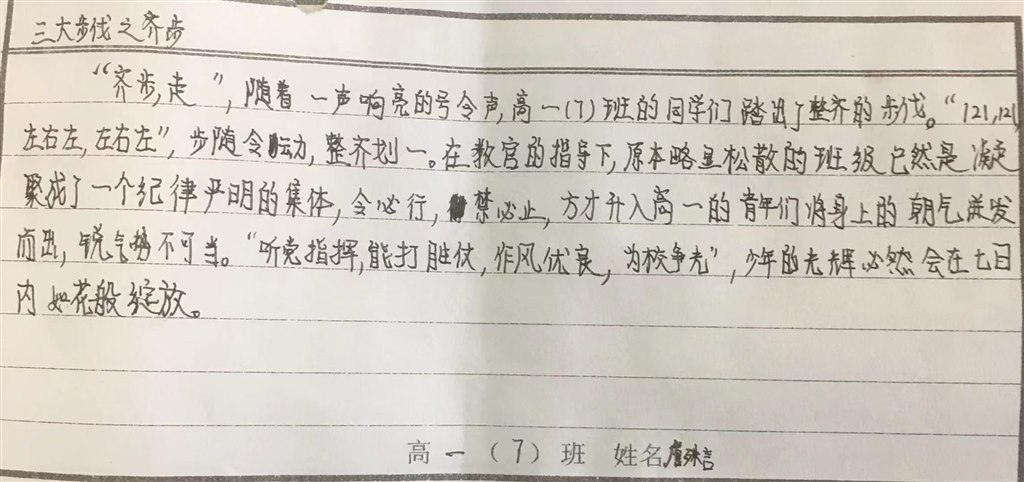 三大步伐之齐步
“齐步,走”,随着一声响亮的号令声,高一(7)班的同学们踏出了整齐的步伐。“121,121,
左右左,左右左”,步随令动,整齐划一。在教官的指导下,原本略显松散的班级已然是凝
聚成了一个纪律严明的集体,令必行,禁必止,方才升入高一的青年们将身上的朝气迸发
而出,锐气势不可当。“听党指挥,能打胜仗,作风优良,为校争光”,少年的光辉必然会在七日
内如花般绽放。
高一(7)班 姓名